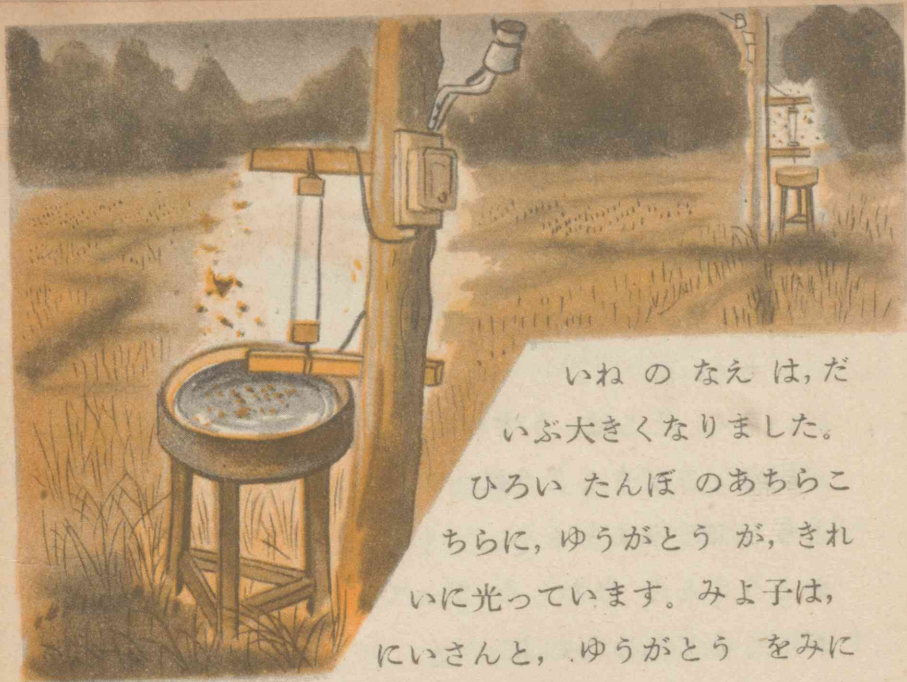 いね の なえ は,だ
いぶ大きくなりました。
ひろい たんぼ のあちらこ
ちらに,ゆうがとう が,きれ
いに光っています。みよ子は,
にいさんと, ゆうがとう をみに